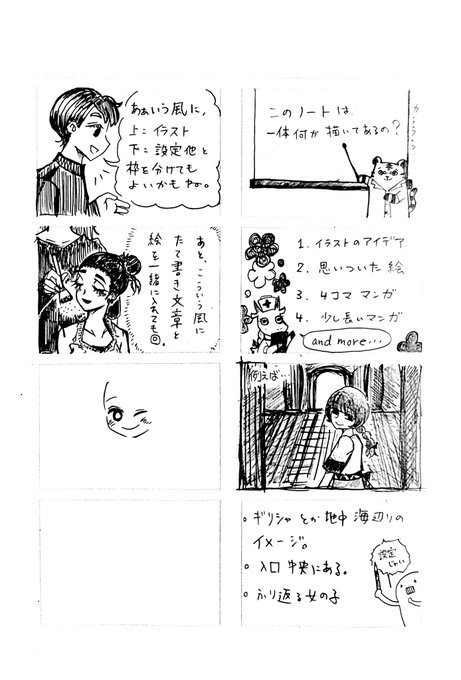 このノートは、
一体何が描いてあるの?
1. イラストのアイデア
2. 思いついた絵
3. 4コママンガ
4. 少し長いマンガ
and more…
例えば…
○ギリシャとか地中海辺りの
イメージ。
○入口中央にある。
○ふり返る女の子
設定
じゃい
ああいう風に、
上:イラスト
下:設定他と
枠を分けても
よいかもやの。
あと、こういう風に
たて書き文章と
絵を一緒に入れても◎。